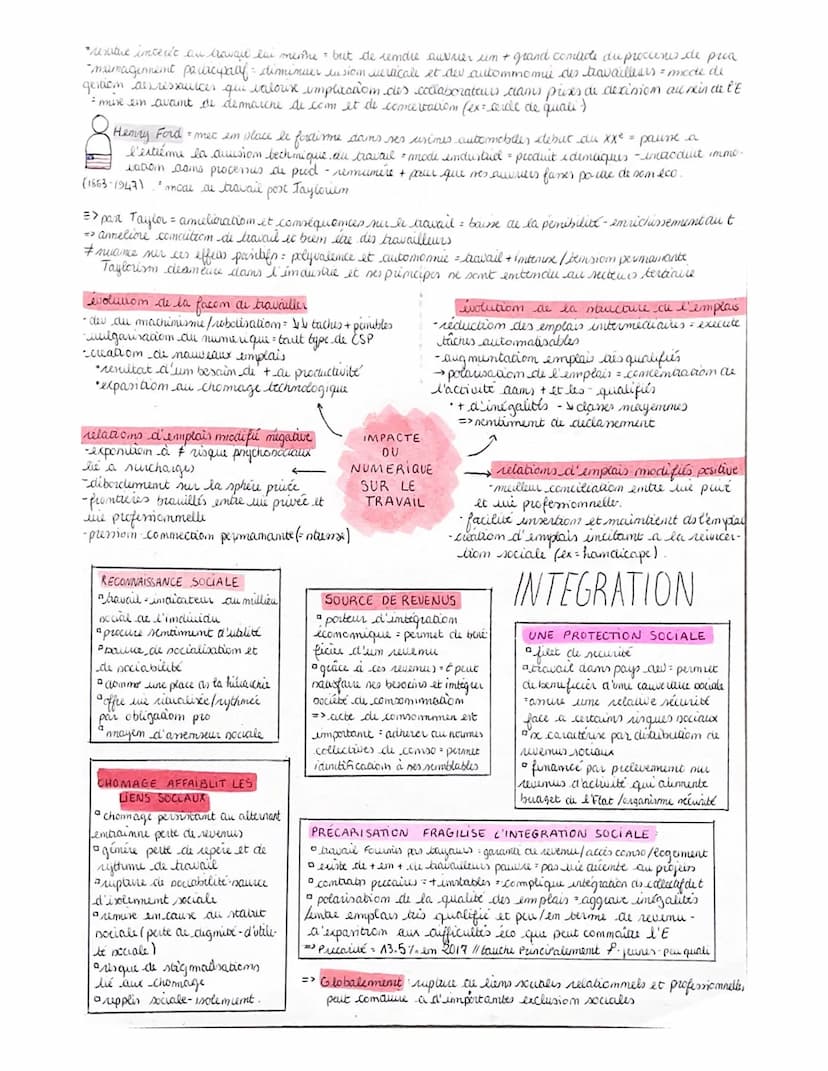 travail lui même = but de rendre ouvrier un + grand controle du processus de prod
- management participatif = diminuer vision verticale et dev autonomie des travailleurs = mode de
gestion des ressources qui valorise implication des collaborateurs dans prises de decision au sein de l'E
= mise en avant de demarche de com et de concertation (ex = cercle de quali.)
Henry Ford = met en place le fordisme dans ses usines automobiles début du XXe = pousse a
l'extrême la division technique du travail = mode industriel = produit identiques - introduit
dans processus de prod - remunère + pour que ses ouvriers fasses partie de son éco.
(1863-1947) . = mode de travail post Taylorien
=> par Taylor = amelioration et conséquences sur le travail = baisse de la pénibilité - enrichissement du t
=> améliore condition de travail et bien être des travailleurs
≠ nuance sur ces effets positifs = polyvalence et autonomie = travail + intense / tension permanante
Taylorism demeure dans l'industrie et ses principes ne sont entendu au secteurs tertiaire
évolution de la façon de travailler
- dev du machinisme/robotisation = ↓↓ taches + penibles
- vulgarisation du numerique = tout type de CSP
- creation de nouveaux emplois
• resultat d'un besoin de + de productivité
• exposition au chomage technologique
évolution de la structure de l'emplois
- réduction des emplois intermédiaires = execute
tâches automatisables
- augmentation emplois très qualifiés
→ polarisation de l'emplois = concentration de
l'activité dans + et les - qualifiés
• + d'inégalités - ↘ classes moyennes
=> sentiment de déclassement
relations d'emplois modifié négative
- exposition à ≠ risque psychosociaux
lié a surcharges
- débordement sur la sphère privée
- frontières brouillés entre vie privée et
vie professionnelle
- pression connection permamante (= intense)
IMPACTE
DU
NUMERIQUE
SUR LE
TRAVAIL
relations d'emplois modifiés positive
- meilleur conciliation entre vie privé
et vie professionnelle.
- facilité insertion et maintient ds l'emploi
- création d'emplois incitant a la reinser-
tion sociale (ex = handicape).
RECONNAISSANCE SOCIALE
▫ travail = indicateur du millieu
social de l'individu
▫ procure sentiment d'utilité
▫ source de socialisation et
de sociabilité
▫ donne une place ds la hiérarchie
▫ offre vie ritualisée/rythmée
par obligation pro
▫ moyen d'ascenseur sociale
SOURCE DE REVENUS
▫ porteur d'intégration
économique = permet de béné
ficier d'un revenu
▫ grâce à ces revenus = E peut
satisfaire ses besoins et intégrer
société de consommation
=> acte de consommer est
importante = adhérer au normes
collectives de conso = permet
identification à ses semblables
INTEGRATION
UNE PROTECTION SOCIALE
▫ filet de sécurité
▫ travail dans pays dev = permet
de beneficier d'une couverture sociale
= assure une relative sécurité
face a certains risques sociaux
▫ se caractérise par distribution de
revenus sociaux
▫ financé par prelevement sur
revenus d'activité qui alimente
budget de l'Etat /organisme sécurité
CHOMAGE AFFAIBLIT LES
LIENS SOCIAUX
▫ chomage persistant ou alternant
entrainne perte de revenus
▫ génère perte de repère et de
rythme de travail
▫ rupture de sociabilité - source
d'isolement sociale
▫ remise en cause du statut
sociale (perte de dignité - d'utili-
té sociale)
▫ risque de stigmatisations
lié aux chomage
▫ replis sociale - isolement.
PRÉCARISATION FRAGILISE L'INTEGRATION SOCIALE
▫ travail fournies pas toujours : garantie de revenu/accès conso/logement
▫ existe de + en + de travailleurs pauvre = pas vie décente ou projets
▫ contrats precaires = + instables = complique intégration ds collectif de t
▫ polarisation de la qualité des emplois = aggrave inégalités
/entre emplois très qualifié et peu/en terme de revenu -
d'exposition aux difficultés éco que peut connaitre l'E
=> Precarité = 13.5% en 2017 // touche Principalement ♀ - jeunes - peu quali
=> Globalement : rupture de liens sociales relationnels et professionnelles
peut conduire a d'importantes exclusion sociales